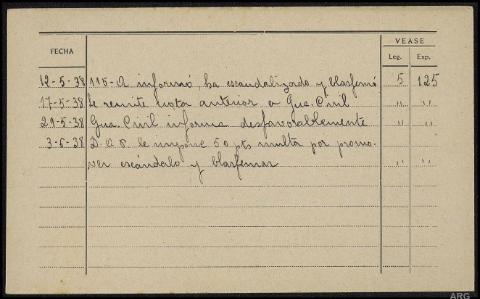 VEASE
FECHA Leg. Exp.
12-5-38 115-A informó, ha escandalizado y blasfemó 5 125
17-5-38 Se remite nota anterior a Gua. Civil " "
29-5-38 Gua. Civil informa desfavorablemente " "
3-6-38 D.O.P. le impone 50 pts multa por promo-
ver escándalo y blasfemar " "
ARG